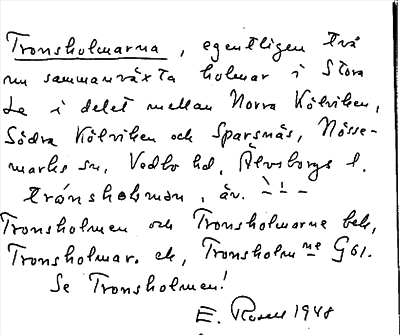 Tronsholmarna, egentligen två
nu sammanväxta holmar i Stora
Le i delet mellan Norra Kölviken,
Södra Kölviken och Sparsnäs, Nösse-
marks sn, Vedbo hd, Älvsborgs l.
trånsholmən, äv.
Tronsholmen och Tronsholmarne bek,
Tronsholmar. ek, Tronsholmne G61.
Se Tronsholmen!
E. Rosell 1948